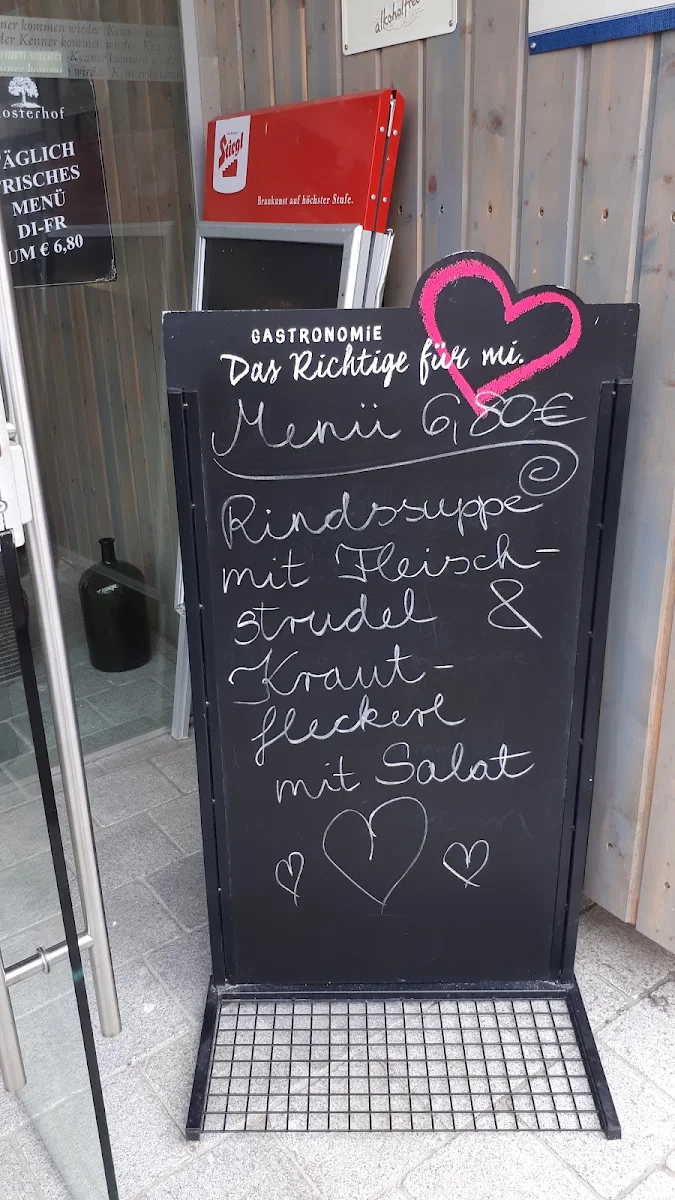 alkoholfrei
Kenner kommen wieder
der Kenner kommen wieder
osterhof
ÄGLICH
RISCHES
MENÜ
DI-FR
UM € 6,80
Stiegl
Braukunst auf höchster Stufe.
GASTRONOMIE
Das Richtige für mi.
Menü 6,80€
Rindssuppe
mit Fleisch-
strudel &
Kraut-
fleckerl
mit Salat